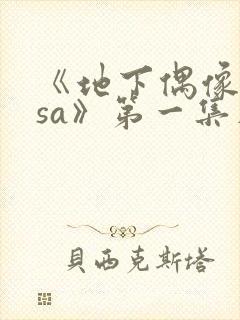 《地下偶像
sa》第一集
貝西克斯塔